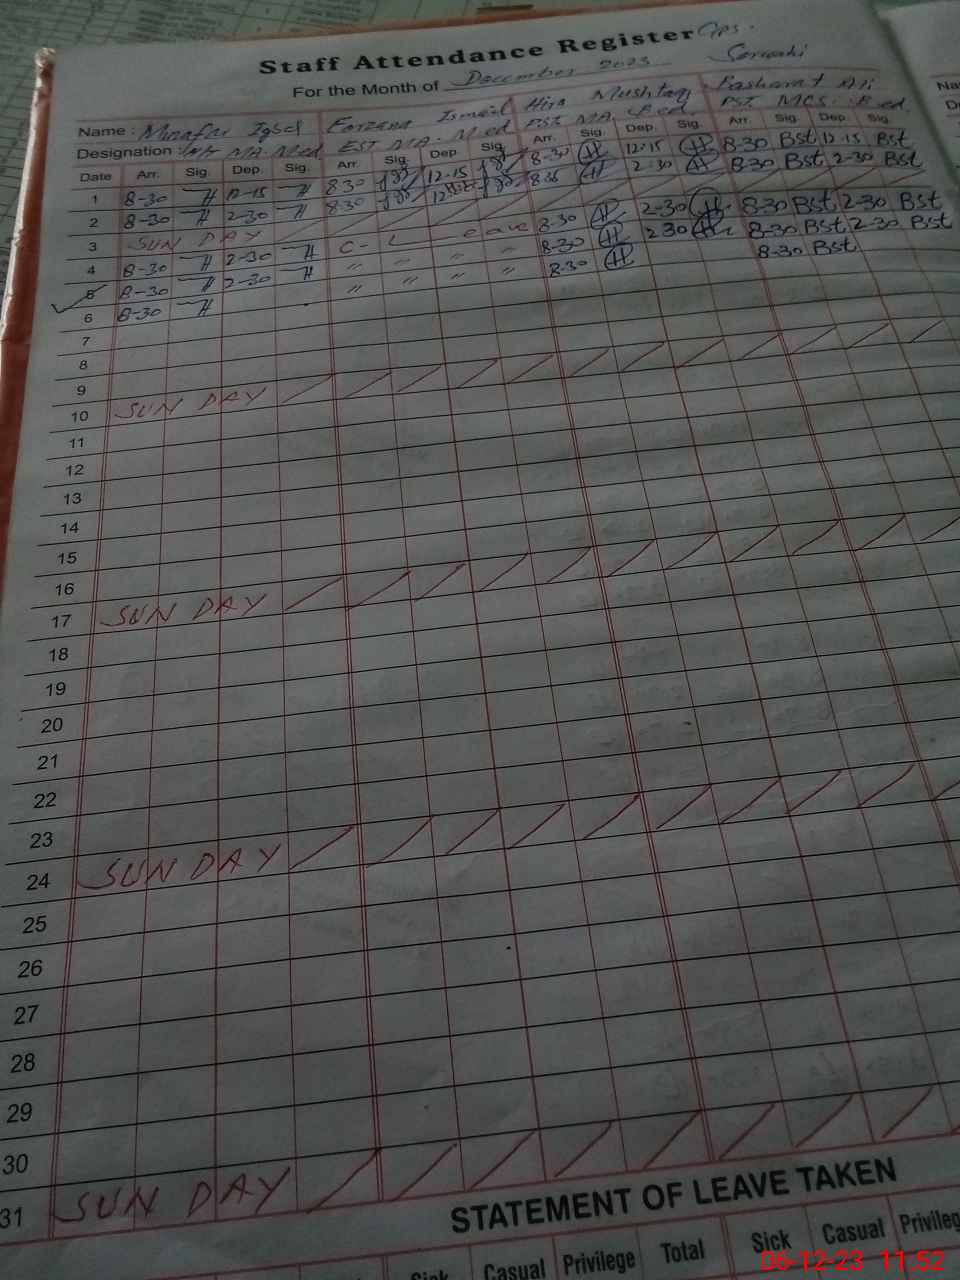 Staff Attendance Register GPS.
For the Month of December 2023
Name : Iqbal Farzana Ismail Hira Mushtaq Basharat Ali
Designation : MA. Med EST MA. Med PST MA. B.ed. PST. MCS. B.ed.
Date Arr. Sig. Dep. Sig. Arr. Sig. Dep. Sig. Arr. Sig. Dep. Sig. Arr. Sig. Dep. Sig.
1 8-30 12-15 8-30 12-15 8-30 12-15 8-30 Bst 12-15 Bst
2 8-30 2-30 8-30 8-30 2-30 8-30 Bst 2-30 Bst
3 SUN DAY
4 8-30 2-30 C-Leave 8-30 2-30 8-30 Bst 2-30 Bst
5 8-30 2-30 " " " " 8-30 2-30 8-30 Bst 2-30 Bst
6 8-30 " " " " 8-30 8-30 Bst
7
8
9
10 SUN DAY
11
12
13
14
15
16
17 SUN DAY
18
19
20
21
22
23
24 SUN DAY
25
26
27
28
29
30
31 SUN DAY
STATEMENT OF LEAVE TAKEN
Sick Casual Privilege Total Sick Casual
06-12-23 11:52